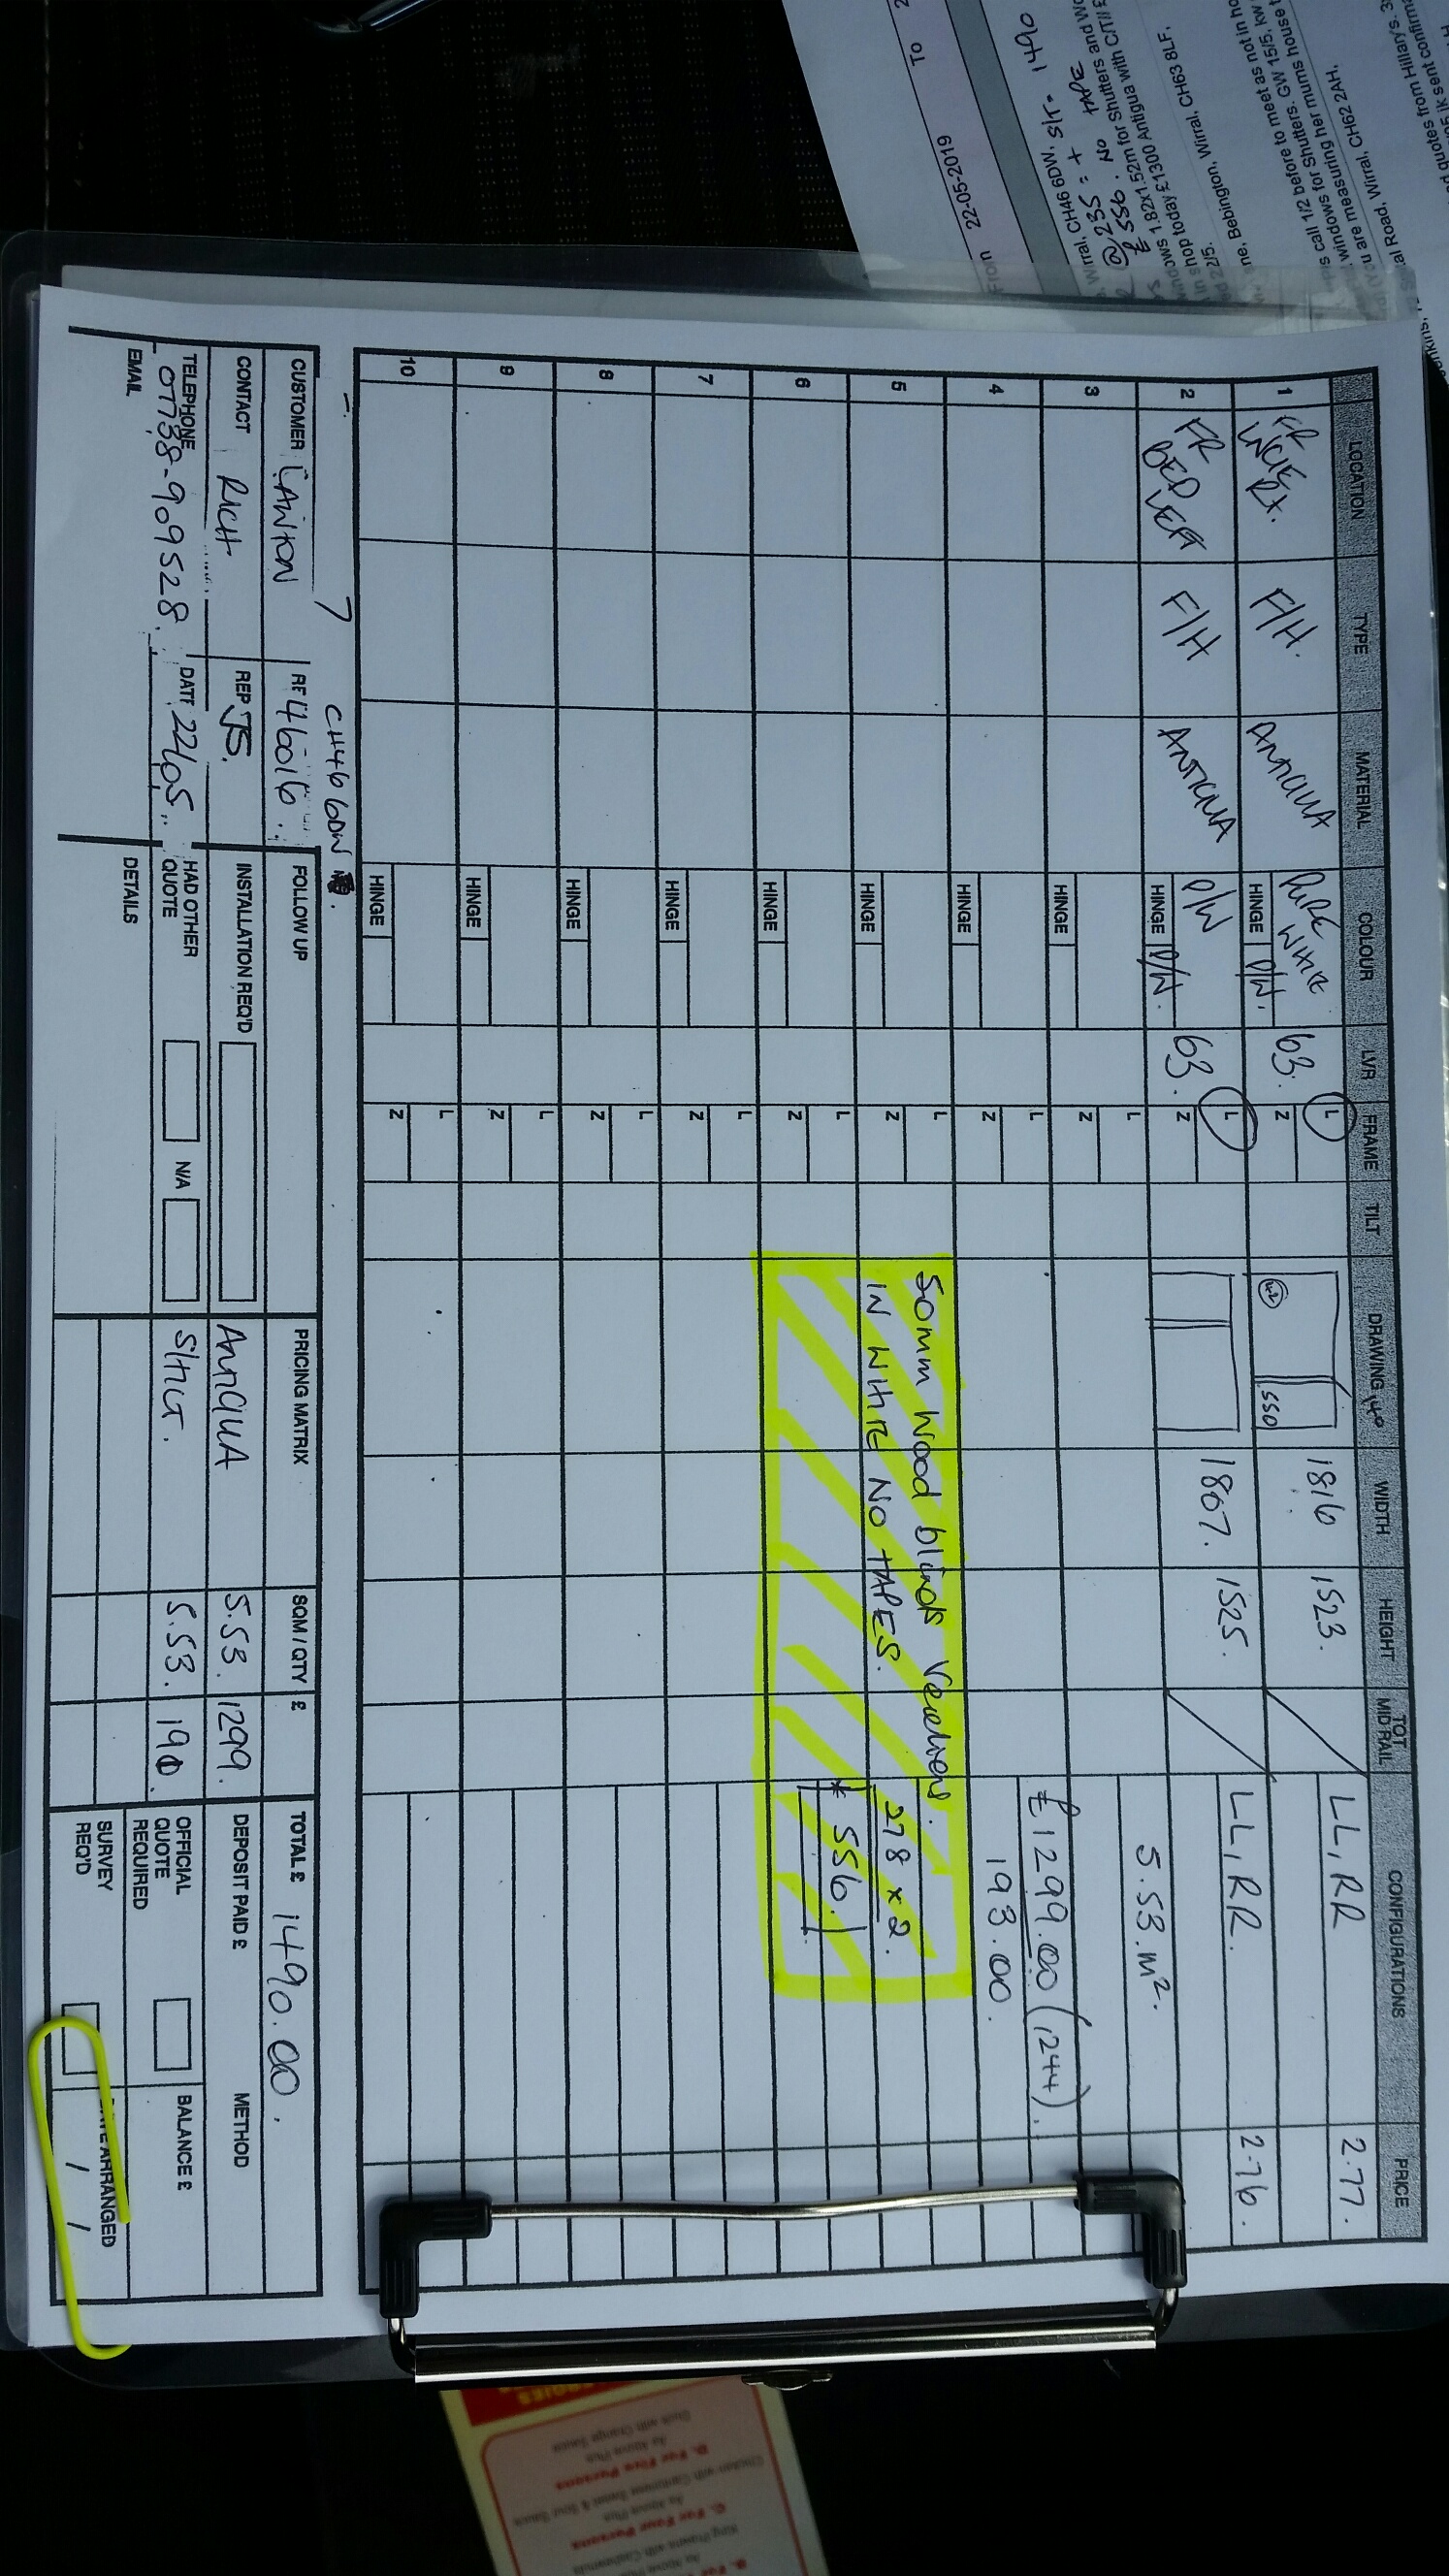 LOCATION TYPE MATERIAL COLOUR LVR FRAME TILT DRAWING 140 WIDTH HEIGHT TOT MID RAIL CONFIGURATIONS PRICE
1 FR F/H. ANTIGUA PURE WHITE 63. L 550 1816 1523. LL, RR 2.77.
HINGE P/W. Z
2 FR BED F/H ANTIGUA P/W 63. L 1807. 1525. LL, RR. 2.76.
HINGE P/W. Z
5.53.m².
3 HINGE L Z
£1299.00 (1244).
4 HINGE L Z
193.00.
5 HINGE L Z
50mm Wood blinds Venetians.
IN WHITE NO TAPES. 278 x 2.
6 HINGE L Z
* 556.
7 HINGE L Z
8 HINGE L Z
9 HINGE L Z
10 HINGE L Z
7 CH46 6DW
CUSTOMER LAWTON
46016.
FOLLOW UP
PRICING MATRIX SQM / QTY £
TOTAL £ 1490.00.
CONTACT RICH
REP JS.
INSTALLATION REQ'D
ANTIGUA 5.53. 1299.
DEPOSIT PAID £ METHOD
TELEPHONE 07738-909528.
DATE 22/05
HAD OTHER QUOTE N/A
5.53. 190.
OFFICIAL QUOTE REQUIRED BALANCE £
EMAIL
DETAILS
SURVEY REQ'D ARRANGED / /
From 22-05-2019 To 2
Wirral, CH46 6DW. S/T= 1490
@ 235 = + TAPE
£ 556. NO TAPE
windows 1.82x1.52m for Shutters and Wo
In shop today £1300 Antigua with C/T//E
2/5.
Bebington, Wirral, CH63 8LF.
call 1/2 before to meet as not in ho
windows for Shutters. GW 15/5. kw
you are measuring her mums house t
Road, Wirral, CH62 2AH.
quotes from Hillary's. 3
sent confirma
Duck with Orange Sauce
As Above Plus
D. For Five Persons
Chicken with Cashewnut Sweet & Sour Sauce
As Above Plus
C. For Four Persons
King Prawns with Cashewnuts
As Above Plus